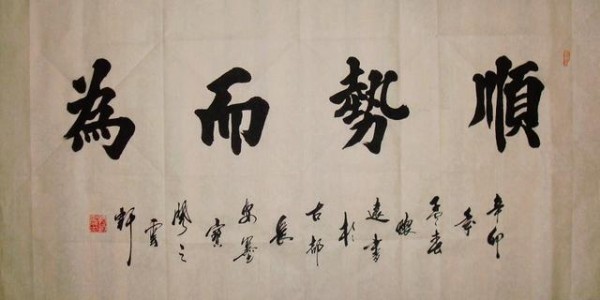 順勢而為
辛卯
年
孟春
遠書
於
古都
長
安墨
寶
之
軒